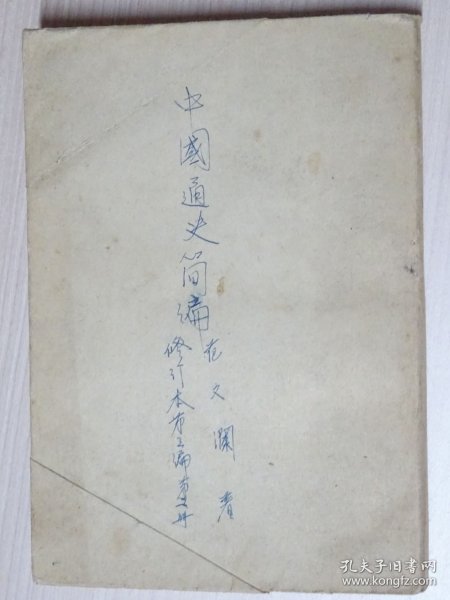 中國通史简编
范文瀾 著
修订本第三编第二册
孔夫子旧书网
www.kongfz.com